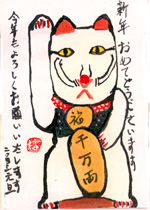 新年おめでとうございます
福
千万両
今年もよろしくお願いいたします
元旦